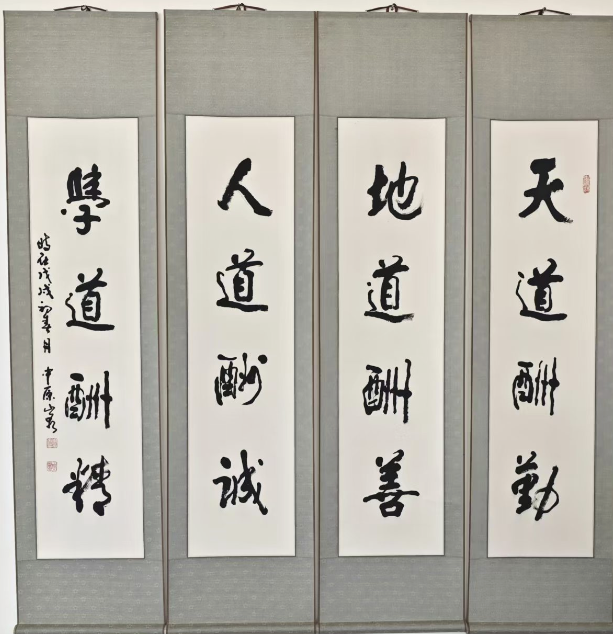 天道酬勤
地道酬善
人道酬诚
學道酬精
時在戊戌初春月 中原山景